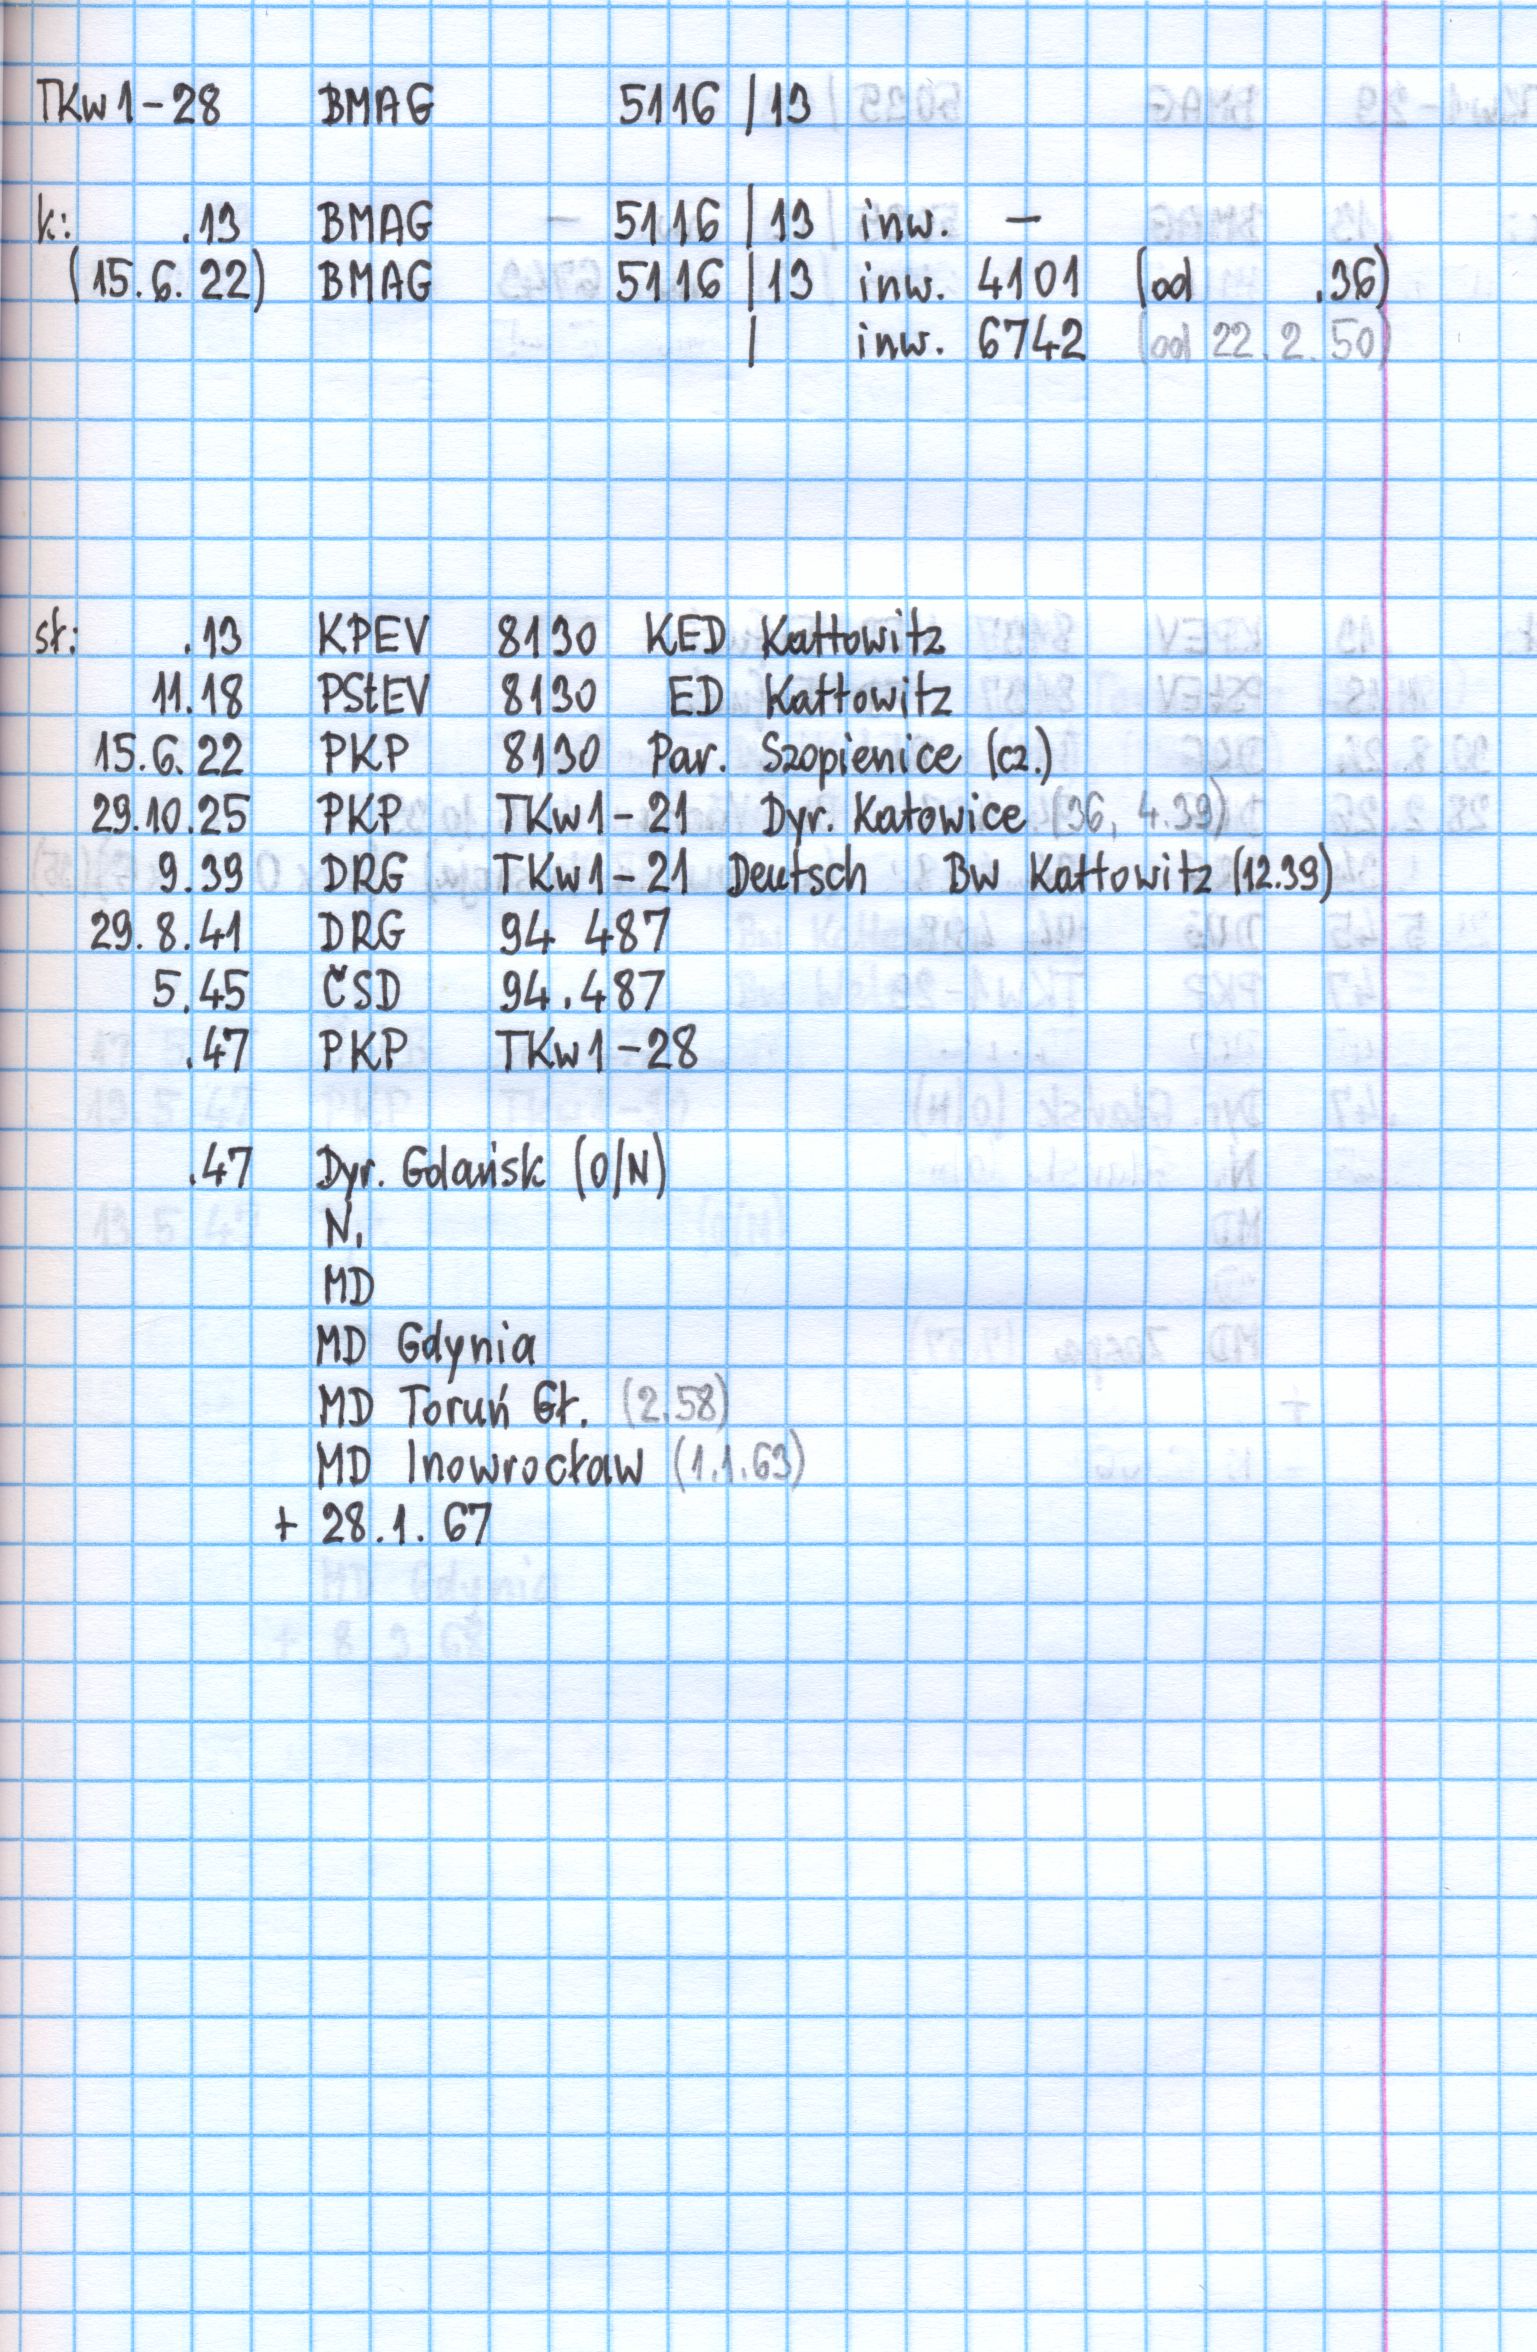 TKw1-28 BMAG 5116 /13
k: .13 BMAG 5116 | 13 inw. -
(15.6.22) BMAG 5116 | 13 inw. 4101 (od .36)
| inw. 6742 (od 22.2.50)
st: .13 KPEV 8130 KED Kattowitz
11.18 PStEV 8130 ED Kattowitz
15.6.22 PKP 8130 Par. Szopienice (cz.)
29.10.25 PKP TKw1-21 Dyr. Katowice (36, 4.39)
9.39 DRG TKw1-21 Deutsch Bw Kattowitz (12.39)
29.8.41 DRG 94 487
5.45 ČSD 94.487
.47 PKP TKw1-28
.47 Dyr. Gdańsk (O/N)
N.
MD
MD Gdynia
MD Toruń Gł. (2.58)
MD Inowrocław (1.1.63)
+ 28.1.67